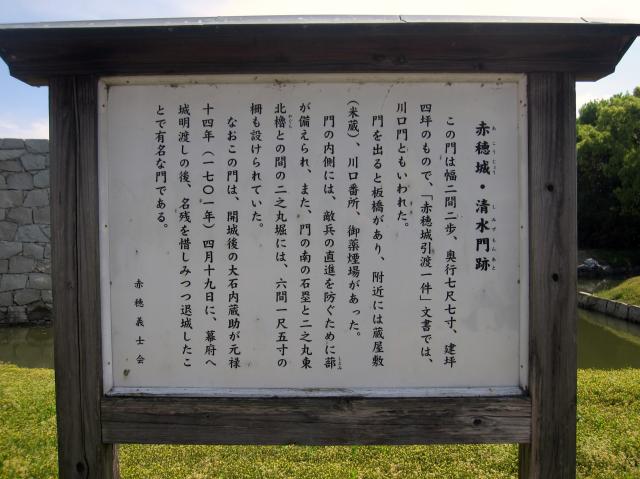 赤穂城・清水門跡
あこうじょう しみずもんあと
この門は幅二間二歩、奥行七尺七寸、建坪
四坪のもので、「赤穂城引渡一件」文書では、
川口門ともいわれた。
門を出ると板橋があり、附近には蔵屋敷
(米蔵)、川口番所、御薬煙場があった。
門の内側には、敵兵の直進を防ぐために蔀
しとみ
が備えられ、また、門の南の石塁と二之丸東
北櫓との間の二之丸堀には、六間一尺五寸の
やぐら
柵も設けられていた。
なおこの門は、開城後の大石内蔵助が元禄
十四年(一七〇一年)四月十九日に、幕府へ
城明渡しの後、名残を惜しみつつ退城したこ
とで有名な門である。
赤穂義士会